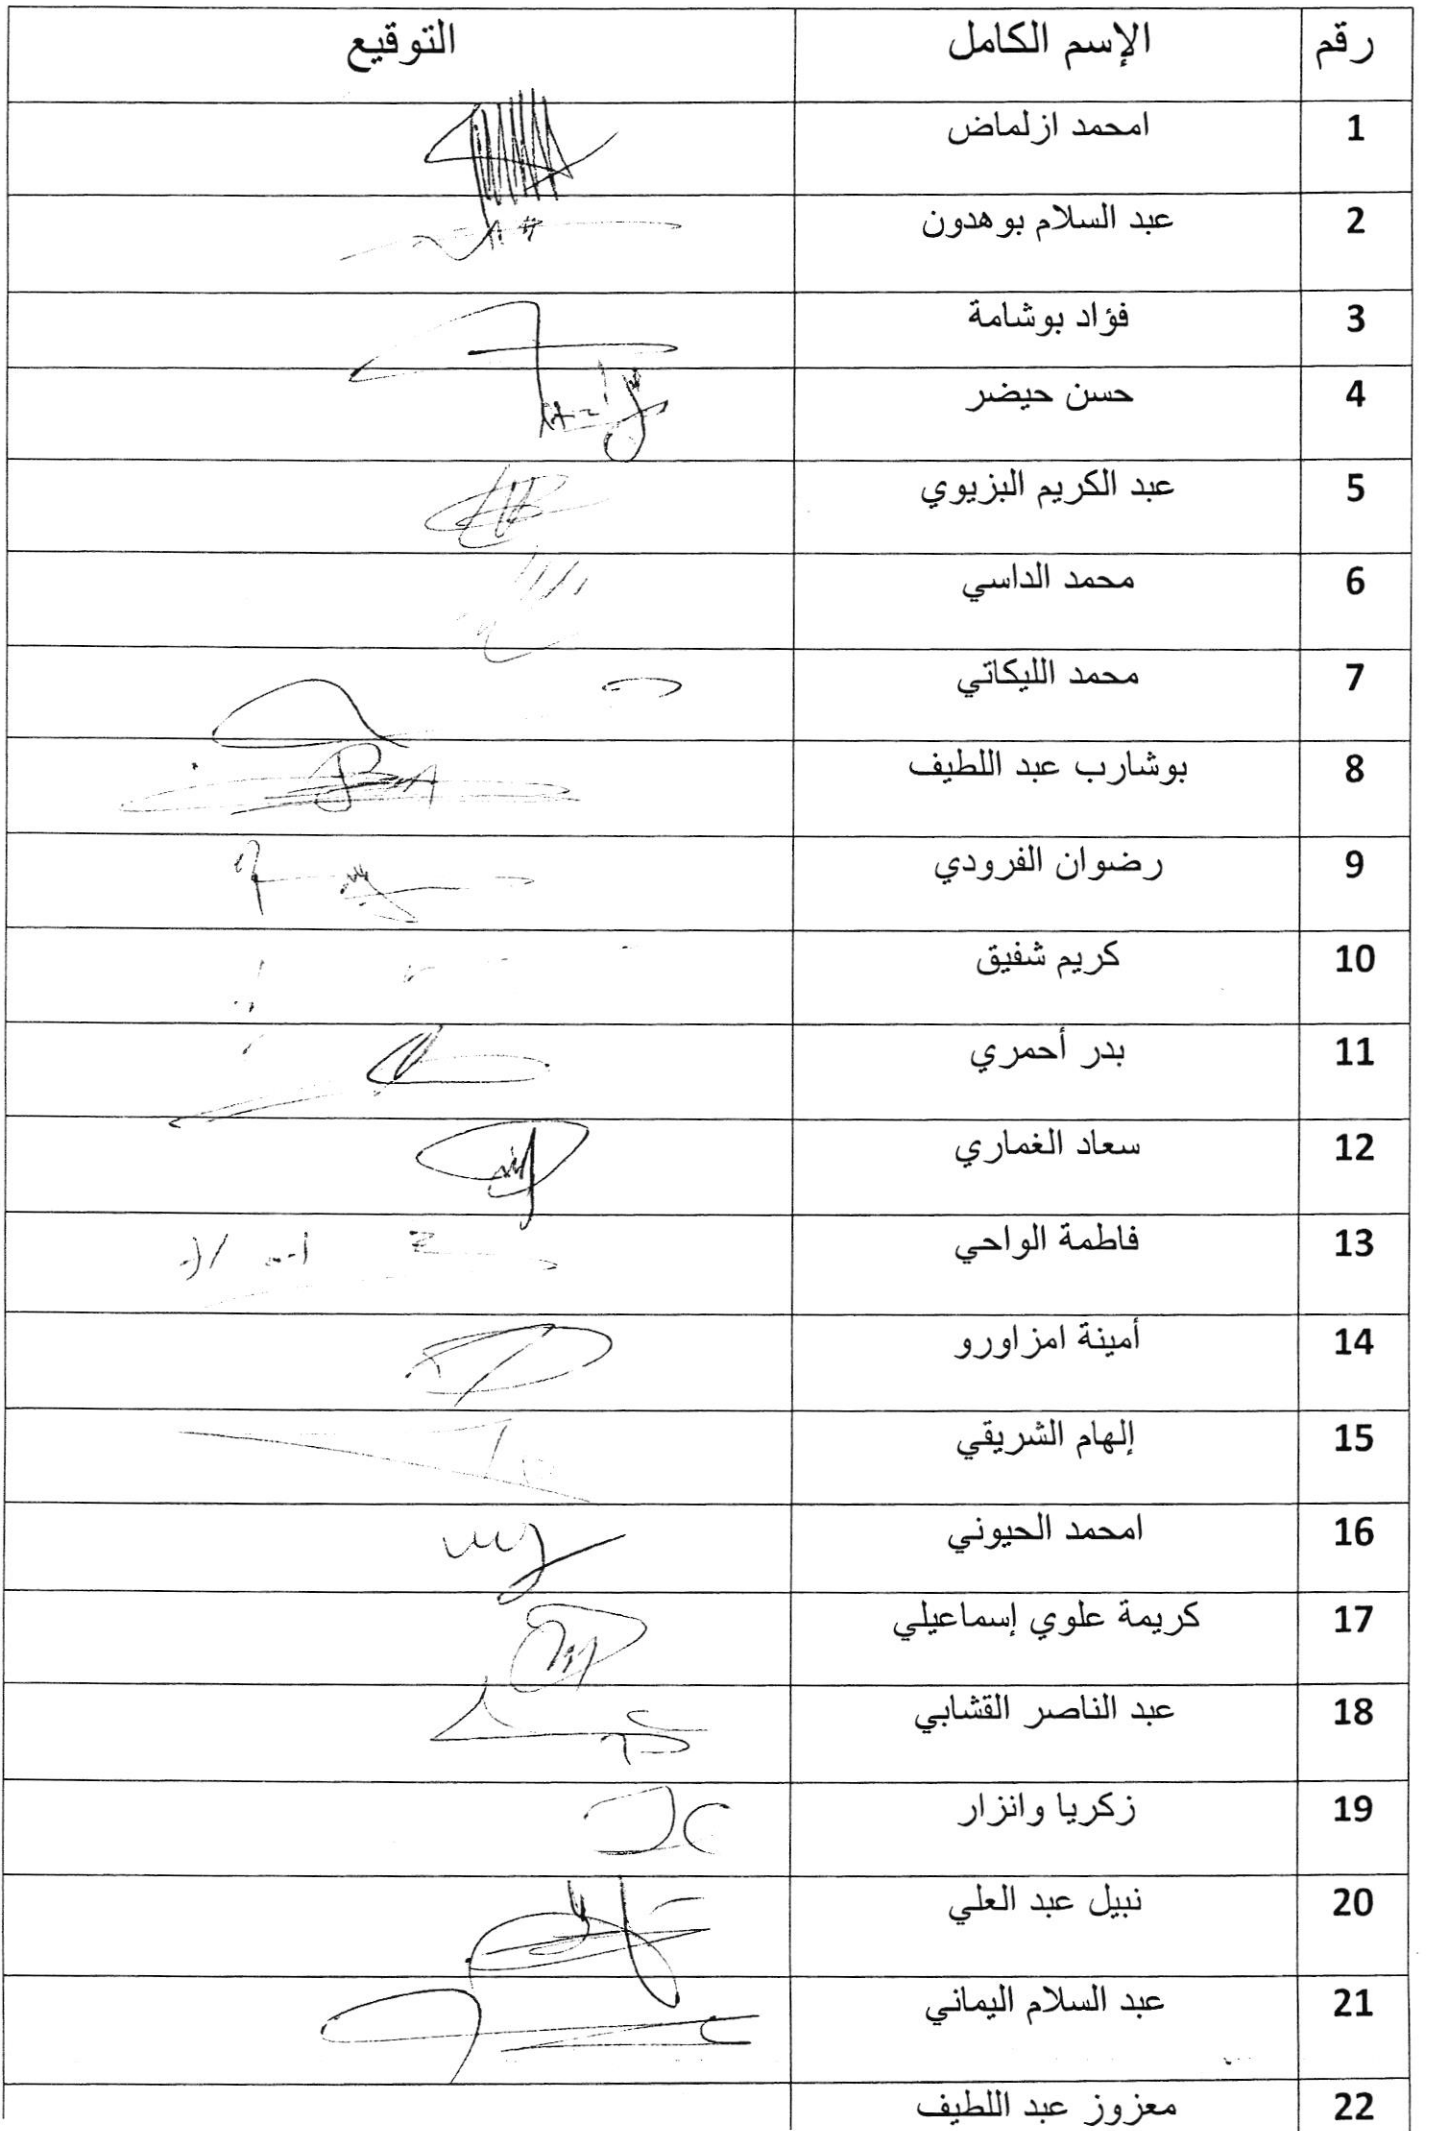 رقم الإسم الكامل التوقيع
1 امحمد ازلماض
2 عبد السلام بوهدون
3 فؤاد بوشامة
4 حسن حيضر
5 عبد الكريم البزيوي
6 محمد الداسي
7 محمد الليكاتي
8 بوشارب عبد اللطيف
9 رضوان الفرودي
10 كريم شفيق
11 بدر أحمري
12 سعاد الغماري
13 فاطمة الواحي
14 أمينة امزاورو
15 إلهام الشريقي
16 امحمد الحيوني
17 كريمة علوي إسماعيلي
18 عبد الناصر القشابي
19 زكريا وانزار
20 نبيل عبد العلي
21 عبد السلام اليماني
22 معزوز عبد اللطيف